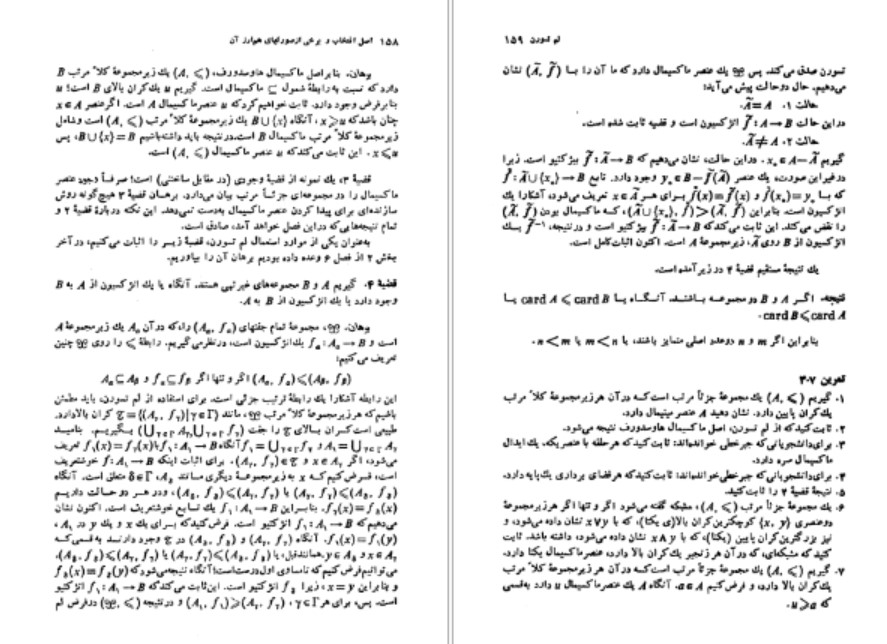 ۱۵۸ اصل انتخاب و برخی از صورتهای هم‌ارز آن
برهان. بنابر اصل ماکسیمال هاوسدورف، (A, ≤) یك زیرمجموعهٔ کلاً مرتب B
دارد که نسبت به رابطهٔ شمول ⊆ ماکسیمال است. گیریم u یك کران بالای B است؛ u
بنابر فرض وجود دارد. ثابت خواهیم کرد که u عنصر ماکسیمال A است. اگر عنصر x∈A
چنان باشد که x≥u، آنگاه B∪{x} یك زیرمجموعهٔ کلاً مرتب (A, ≤) است و شامل
زیرمجموعهٔ کلاً مرتب ماکسیمال B است. در نتیجه باید داشته باشیم B∪{x}=B، پس
x≤u. این ثابت می‌کند که u عنصر ماکسیمال (A, ≤) است.
قضیهٔ ۳، یك نمونه از قضیهٔ وجودی (در مقابل ساختنی) است؛ صرفاً وجود عنصر
ماکسیمال را در مجموعه‌ای جزئاً مرتب بیان می‌دارد. برهان قضیهٔ ۳ هیچ‌گونه روش
سازنده‌ای برای پیدا کردن عنصر ماکسیمال به‌دست نمی‌دهد. این نکته دربارهٔ قضیهٔ ۲ و
تمام نتیجه‌هایی که در این فصل خواهد آمد، صادق است.
به‌عنوان یکی از موارد استعمال لم تسورن، قضیهٔ زیر را اثبات می‌کنیم، در آخر
بخش ۲ از فصل ۶ وعده داده بودیم برهان آن را بیاوریم.
قضیهٔ ۴. گیریم A و B مجموعه‌های غیرتهی هستند. آنگاه یا یك انژکسیون از A به B
وجود دارد یا یك انژکسیون از B به A.
مجموعهٔ تمام جفتهای (Aα, fα) را، که در آن Aα یك زیرمجموعهٔ A
است و fα : Aα→B یك انژکسیون است، در نظر می‌گیریم. رابطهٔ ≤ را روی چنین
تعریف می‌کنیم:
(Aα, fα)≤(Aβ, fβ) اگر و تنها اگر fα⊆fβ و Aα⊆Aβ
این رابطه آشکارا یك رابطهٔ ترتیب جزئی است. برای استفاده از لم تسورن، باید مطمئن
باشیم که هر زیرمجموعهٔ کلاً مرتب مانند {(Aγ, fγ)|γ∈Γ} کران بالا دارد.
طبیعی است کران بالای را جفت (⋃γ∈Γ Aγ, ⋃γ∈Γ fγ) بگیریم. بنامید
⋃γ∈Γ Aγ=A₁ و ⋃γ∈Γ fγ=f₁ آنگاه f₁ : A₁→B با f₁(x)=fγ(x) تعریف
می‌شود، اگر x∈Aγ و (Aγ, fγ)∈. برای اثبات اینکه f₁ : A₁→B خوشتعریف
است، فرض کنیم که x به زیرمجموعهٔ دیگری مانند Aδ، δ∈Γ متعلق است. آنگاه
(Aδ, fδ)≤(Aγ, fγ) یا (Aγ, fγ)≤(Aδ, fδ)، و در هر دو حالت داریم
fγ(x)=fδ(x). بنابراین f₁ : A₁→B یك تابع خوشتعریف است. اکنون نشان
می‌دهیم که f₁ : A₁→B انژکتیو است. فرض کنید که برای یك x و یك y در A₁،
f₁(x)=f₁(y). آنگاه (Aγ, fγ) و (Aδ, fδ) در وجود دارند به قسمی که
x∈Aγ و y∈Aδ. همانند قبل، یا (Aδ, fδ)≤(Aγ, fγ) یا (Aγ, fγ)≤(Aδ, fδ).
می‌توانیم فرض کنیم که نامساوی اول درست است؛ آنگاه نتیجه می‌شود که
و بنابراین x=y، زیرا انژکتیو است. این ثابت می‌کند که f₁ : A₁→B انژکتیو
است. پس، برای هر γ∈Γ، (A₁, f₁)≥(Aγ, fγ) و در نتیجه در فرض لم
لم تسورن ۱۵۹
تسورن صدق می‌کند. پس یك عنصر ماکسیمال دارد که ما آن را با (Ã, f̃) نشان
می‌دهیم. حال دو حالت پیش می‌آید:
حالت ۱. Ã=A.
در این حالت f̃ : A→B انژکسیون است و قضیه ثابت شده است.
حالت ۲. Ã≠A.
گیریم x₀∈A−Ã. در این حالت، نشان می‌دهیم که f̃ : Ã→B بیژکتیو است. زیرا
در غیر این صورت، یك عنصر y₀∈B−f̃(Ã) وجود دارد. تابع f̂ : Ã∪{x₀}→B
که با f̂(x₀)=y₀ و f̂(x)=f̃(x) برای هر x∈Ã تعریف می‌شود، آشکارا یك
انژکسیون است. بنابراین (Ã∪{x₀}, f̂)>(Ã, f̃)، که ماکسیمال بودن (Ã, f̃)
را نقض می‌کند. این ثابت می‌کند که f̃ : Ã→B بیژکتیو است و در نتیجه، f̃⁻¹ یك
انژکسیون از B روی Ã، زیرمجموعهٔ A است. اکنون اثبات کامل است.
یك نتیجهٔ مستقیم قضیهٔ ۴ در زیر آمده است.
نتیجه. اگر A و B دو مجموعه باشند، آنگاه یا card A≤card B یا
card B≤card A.
بنابراین اگر m و n دو عدد اصلی متمایز باشند، یا m<n یا n<m.
تمرین ۳.۷
۱. گیریم (A, ≤) یك مجموعهٔ جزئاً مرتب است که در آن هر زیرمجموعهٔ کلاً مرتب
یك کران پایین دارد. نشان دهید A عنصر مینیمال دارد.
۲. ثابت کنید که از لم تسورن، اصل ماکسیمال هاوسدورف نتیجه می‌شود.
۳. برای دانشجویانی که جبر خطی خوانده‌اند: ثابت کنید که هر حلقه با عنصر یکه، یك ایدال
ماکسیمال سره دارد.
۴. برای دانشجویانی که جبر خطی خوانده‌اند: ثابت کنید که هر فضای برداری یك پایه دارد.
۵. نتیجهٔ قضیهٔ ۴ را ثابت کنید.
۶. یك مجموعهٔ جزئاً مرتب (A, ≤)، مشبکه گفته می‌شود اگر و تنها اگر هر زیرمجموعهٔ
دوعنصری {x, y} کوچکترین کران بالا(ی یکتا)، که با x∨y نشان داده می‌شود، و
نیز بزرگترین کران پایین (یکتا)، که با x∧y نشان داده می‌شود، داشته باشد. ثابت
کنید که مشبکه‌ای، که در آن هر زنجیر یك کران بالا دارد، عنصر ماکسیمال یکتا دارد.
۷. گیریم (A, ≤) یك مجموعهٔ جزئاً مرتب است که در آن هر زیرمجموعهٔ کلاً مرتب
یك کران بالا دارد، و فرض کنیم a∈A. آنگاه A یك عنصر ماکسیمال u دارد به‌قسمی
که u≥a.